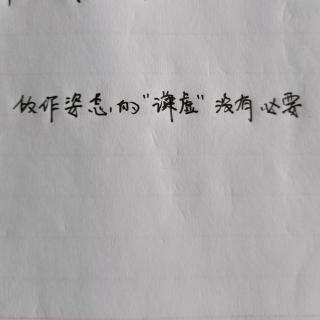 故作姿态的“谦虚”没有必要